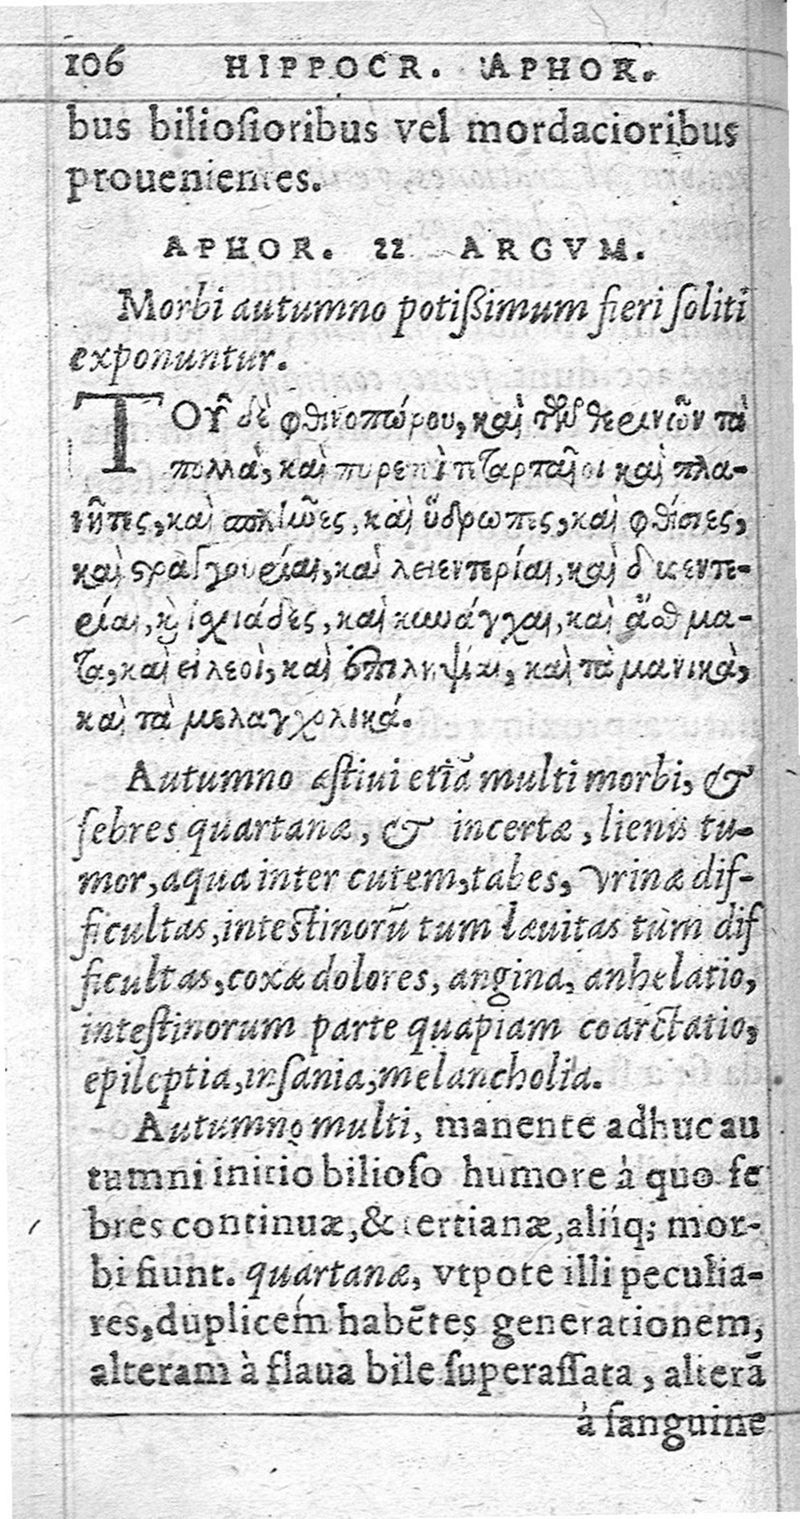 106 HIPPOCR. APHOR.
bus bilioſioribus vel mordacioribus
prouenientes.
APHOR. 22 ARGVM.
Morbi autumno potißimum fieri ſoliti
exponuntur.
ΤΟΥ͂ δὲ φθινοπώρου, καὶ τῶν θερινῶν τὰ
πολλὰ, καὶ πυρετοὶ τεταρταῖοι καὶ πλα-
νῆτες, καὶ σπλῆνες, καὶ ὕδρωπες, καὶ φθίσιες,
καὶ στραγγουρίαι, καὶ λειεντερίαι, καὶ δυσεντε-
ρίαι, καὶ ἰσχιάδες, καὶ κυνάγχαι, καὶ ἄσθμα-
τα, καὶ εἰλεοὶ, καὶ ἐπιληψίαι, καὶ τὰ μανικὰ,
καὶ τὰ μελαγχολικά.
Autumno æſtiui etiā multi morbi, &
febres quartanæ, & incertæ, lienis tu-
mor, aqua inter cutem, tabes, vrinæ dif-
ficultas, inteſtinorū tum læuitas tùm dif
ficultas, coxæ dolores, angina, anhelatio,
inteſtinorum parte quapiam coarctatio,
epileptia, inſania, melancholia.
Autumno multi, manente adhuc au
tumni initio bilioſo humore à quo fe
bres continuæ, & tertianæ, aliíq; mor-
bi fiunt. quartanæ, vtpote illi peculia-
res, duplicem habētes generationem,
alteram à flaua bile ſuperaſſata, alterā
à ſanguine